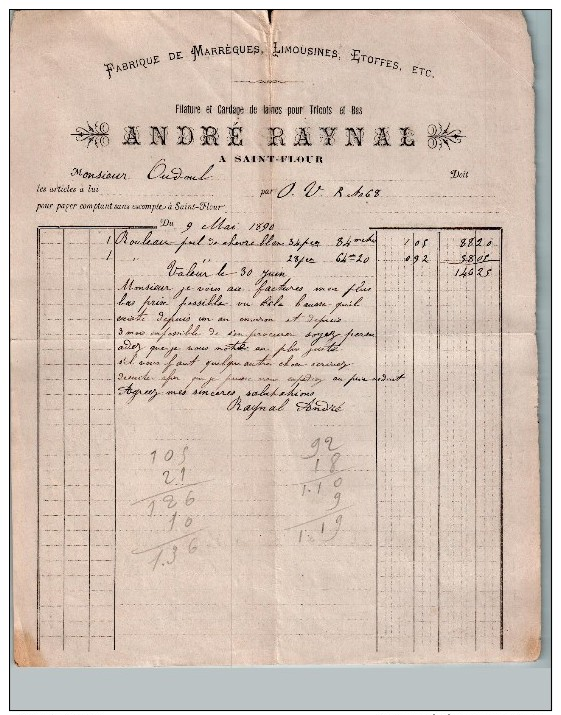 FABRIQUE DE MARRÈGUES, LIMOUSINES, ETOFFES, ETC.
Filature et Cardage de laines pour Tricots et Bas
ANDRÉ RAYNAL
A SAINT-FLOUR
Monsieur Doit
les articles à lui par P. V. R No 68
pour payer comptant sans escompte à Saint-Flour.
Du 9 Mai 1890
1 Rouleau poil de chevre blanc 84 1 05 8820
1 " 64 20 0 92 5805
Valeur le 30 juin 14625
Monsieur je vous ai facturés mon plus
bas prix possible vu la hausse qu'il
existe depuis un an environ et depuis
3 mois impossible de s'en procurer soyez persu
ader que je vous au plus juste
s'il vous faut quelque autre chose ecrivez
de suite afin que je puisse vous au prix reduit
Agreez mes sinceres salutations
Raynal André
105 92
21 18
126 1.10
10 9
1.36 1.19